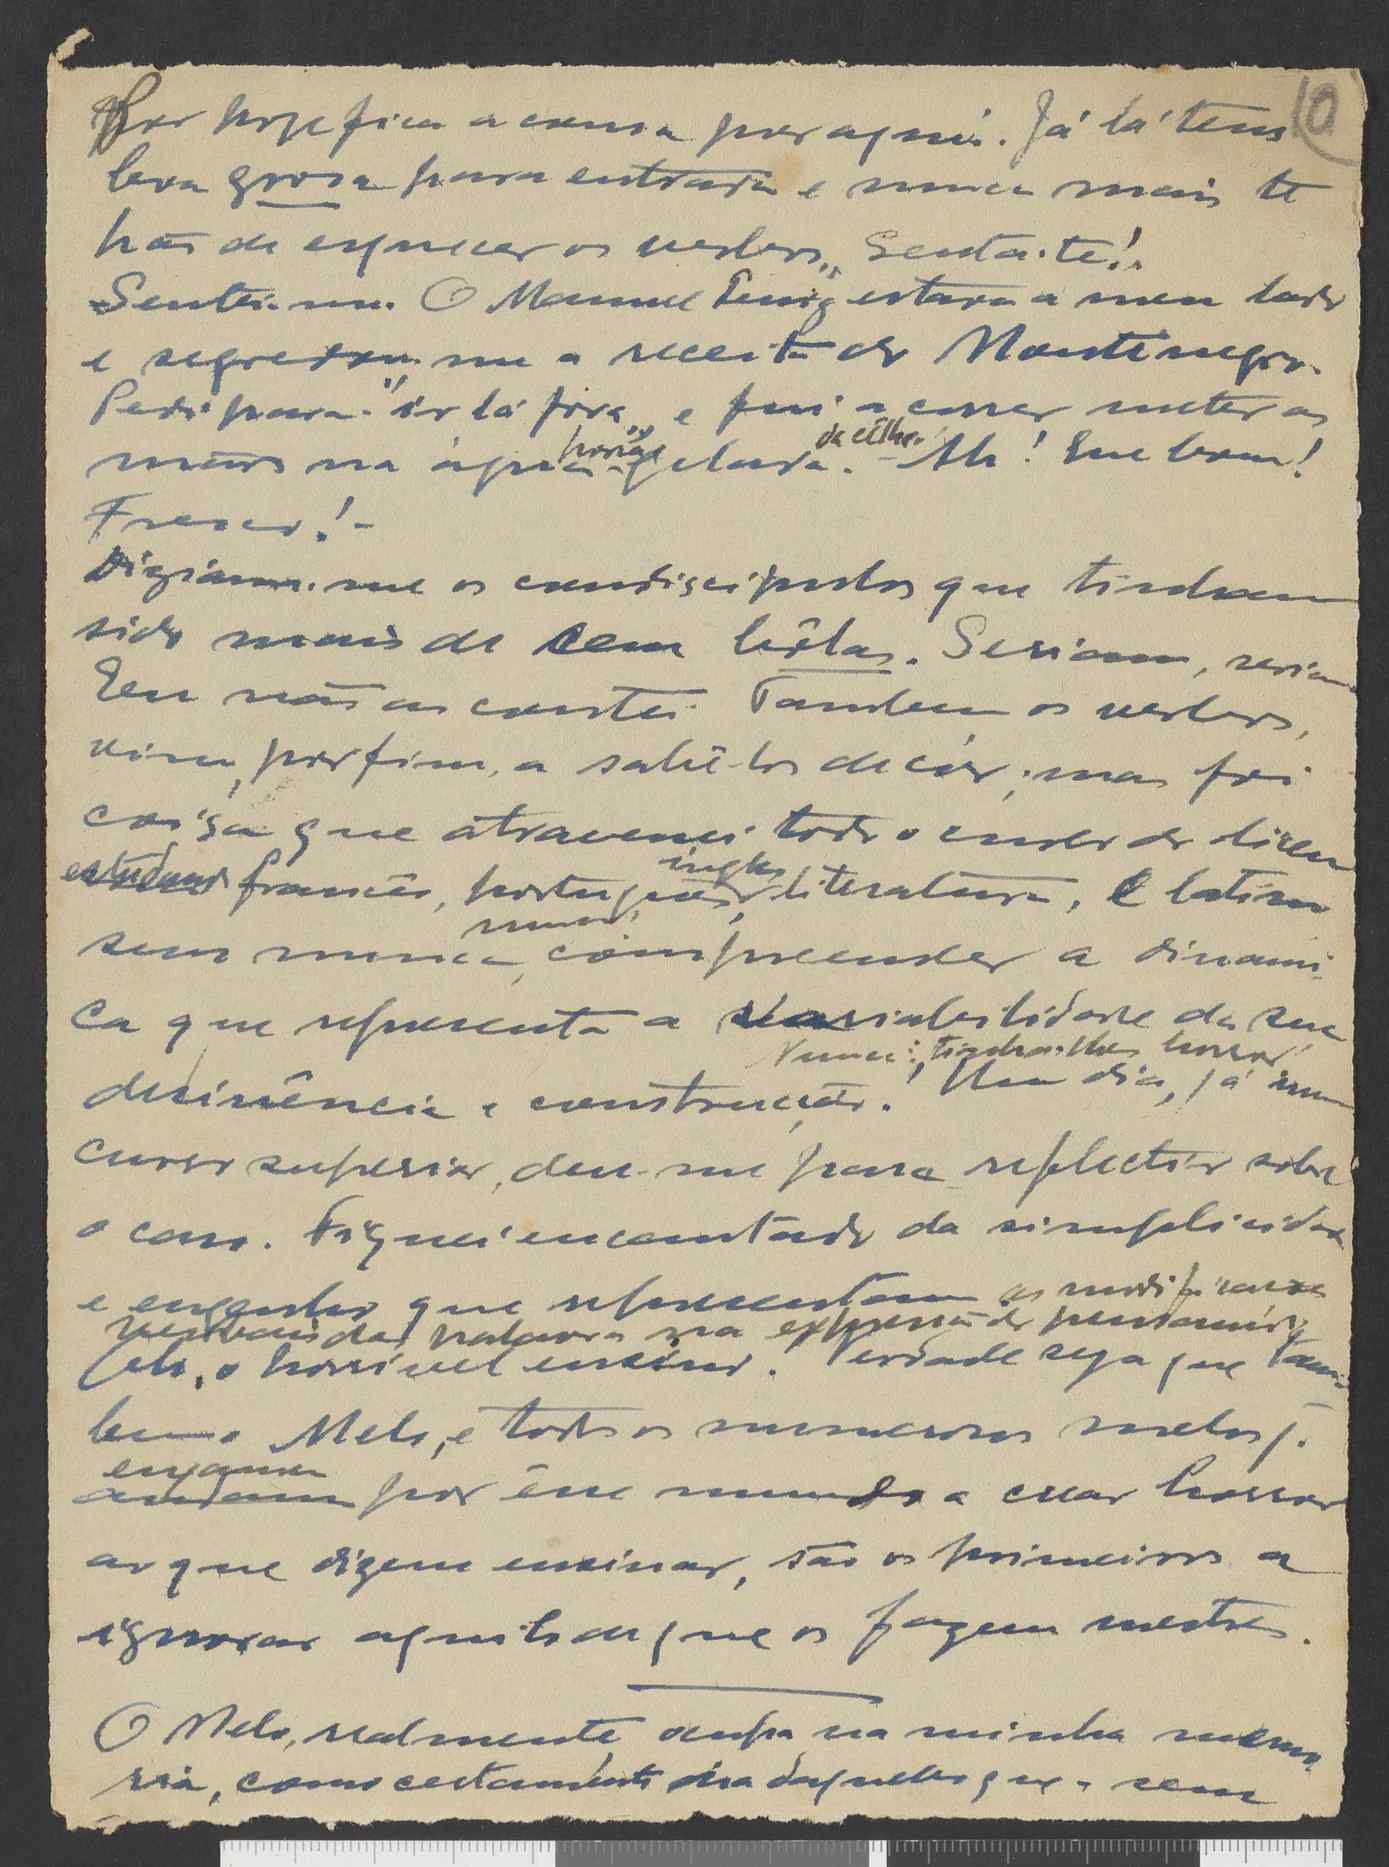 10
Por hoje fica a cousa por aqui. Já lá tens
boa grosa para entrada e nunca mais te
hás de esquecer os verbos„ Senta-te!„
Sentei-me. O Manuel Diniz estava a meu lado
e segredou-me a receita do Montenegro.
Pedi para "ir lá fóra„ e fui a correr meter as
mãos na água gelada. - Ah! Que bom!
Fresco! -
Diziam-me os condiscipulos que tinham
sido mais de cem bôlas. Seriam, seriam
Eu não as contei. Tambem os verbos,
vim, por fim, a sabê-los de cór; mas foi
coisa que atravessei todo o curso do liceu
estudando francês, português, inglês, literatura, e latim
sem nunca, nunca, compreender a dinami-
ca que representa a variabilidade da sua
desinência e construção! Nunca: tinha-lhes horror! Um dia, já num
curso superior, deu-me para reflectir sobre
o caso. Fiquei encantado da simplicidade
e engenho que representam as modificações
verbais da palavra na expressão do pensamento
Oh, o horrivel ensino. Verdade seja que tam-
bem o Melo, e todos os numerosos melos q.
andam por êsse mundo a criar horror
ao que dizem ensinar, são os primeiros a
ignorar aquilo de que os fazem mestres.
O Melo, realmente ocupa na minha memo-
ria, como certamente na daqueles que sem